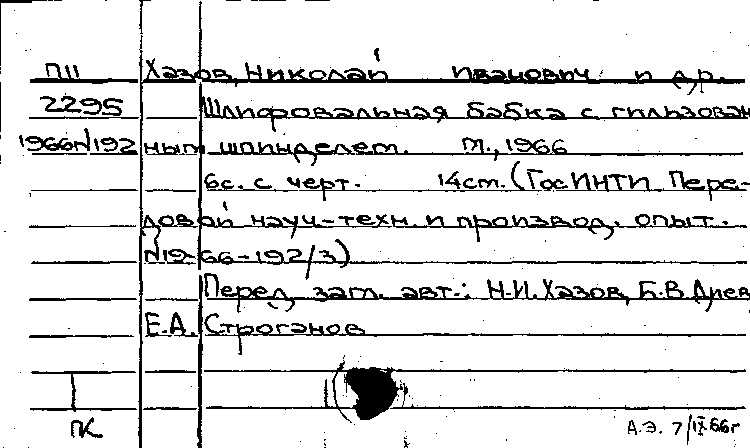 П11 Хазов, Николай Иванович и др.
2295 Шлифовальная бабка с гильзован
1966№192 ным шпинделем. М., 1966
6с. с черт. 14см. (ГосИНТИ Пере-
довой науч.-техн. и производ. опыт.
№19-66-192/3)
Перед загл. авт.: Н.И. Хазов, Б.В.
Е.А. Строганов
ПК
А.Э. 7/IX 66г